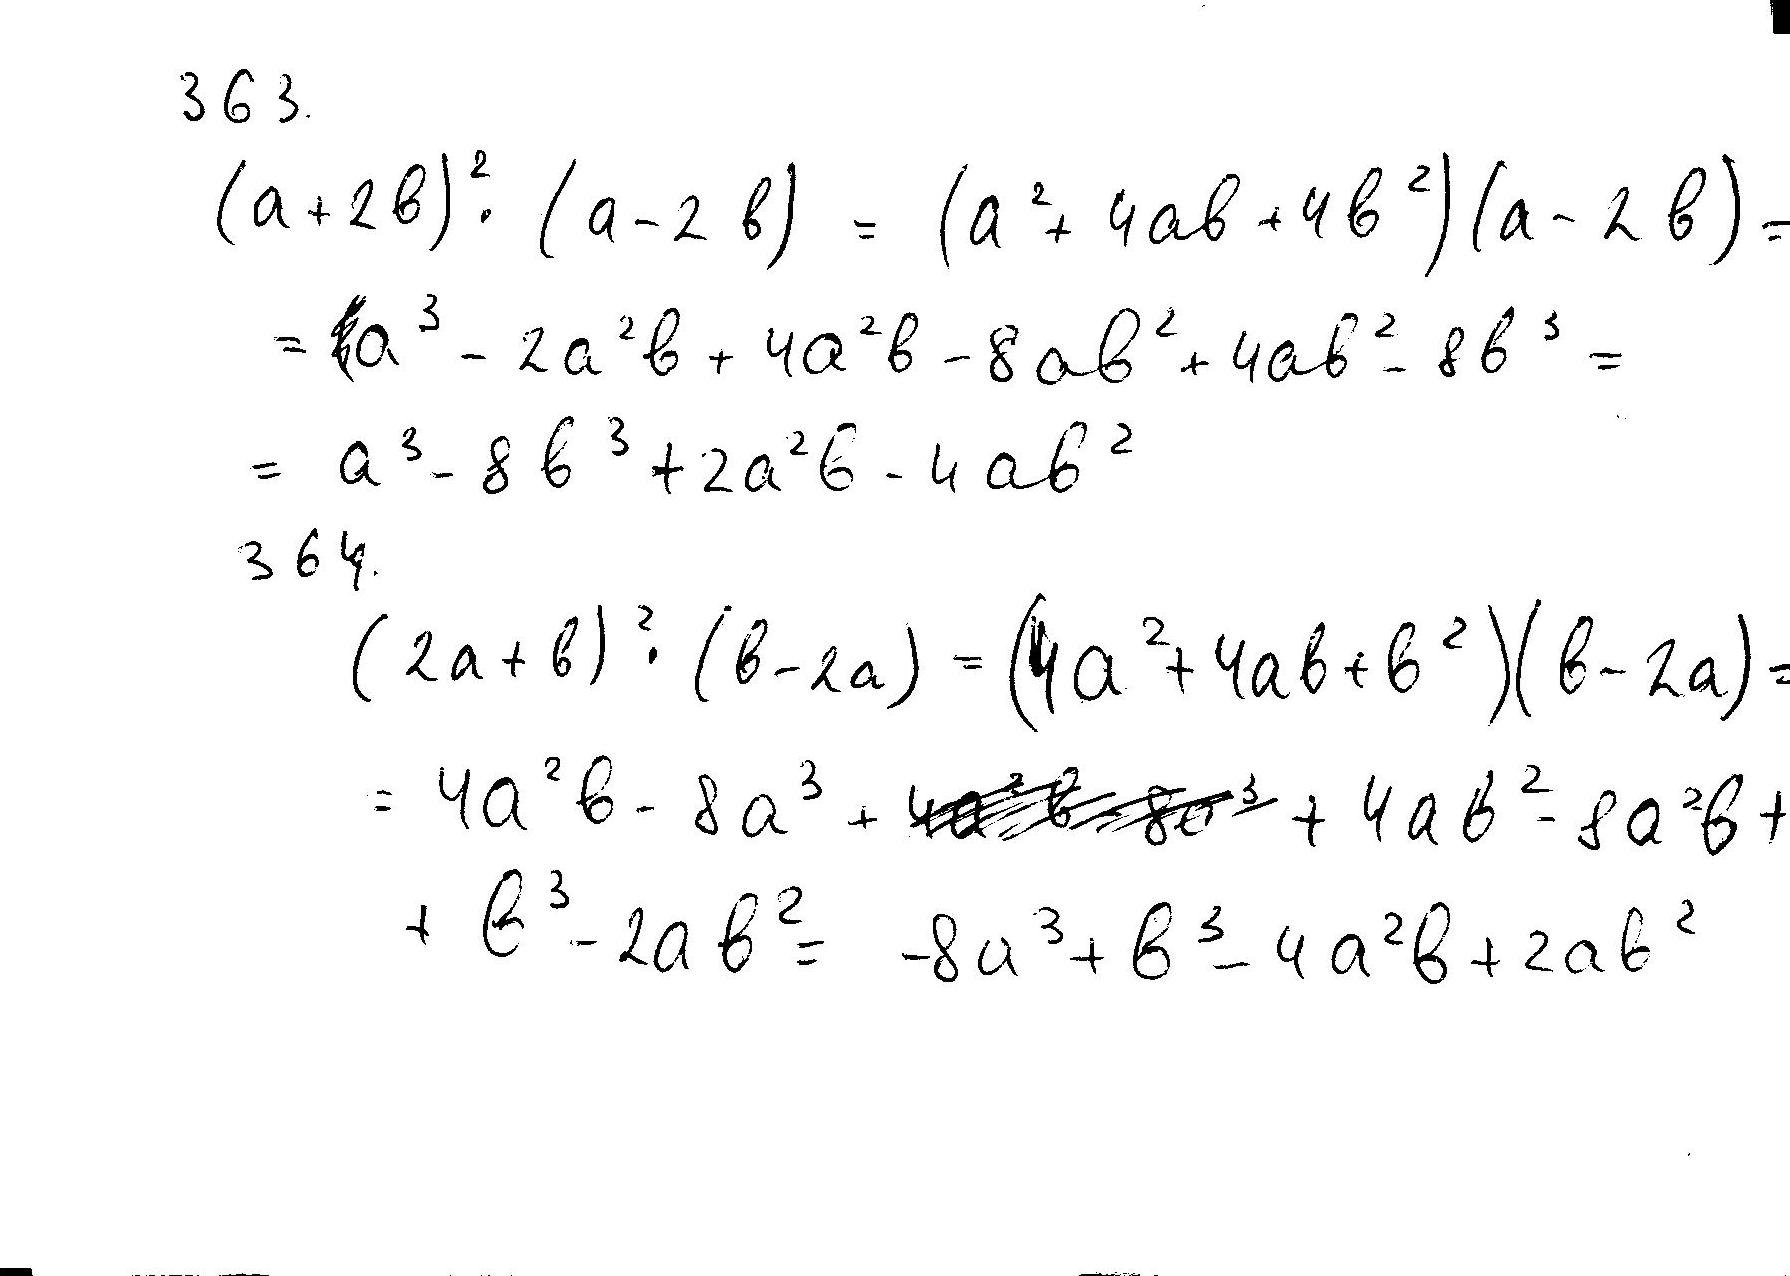 363.
(a+2b)²·(a-2b) = (a²+4ab+4b²)(a-2b)=
= a³-2a²b+4a²b-8ab²+4ab²-8b³=
= a³-8b³+2a²b-4ab²
364.
(2a+b)²·(b-2a)=(4a²+4ab+b²)(b-2a)=
= 4a²b-8a³+ 4a²b-8a³ +4ab²-8a²b+
+ b³-2ab²= -8a³+b³-4a²b+2ab²